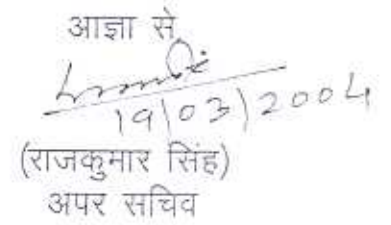 आज्ञा से,
19/03/2004
(राजकुमार सिंह)
अपर सचिव